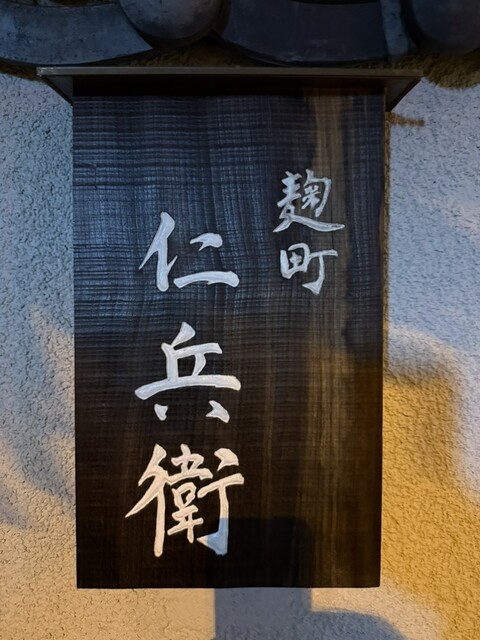 麹町
仁兵衛